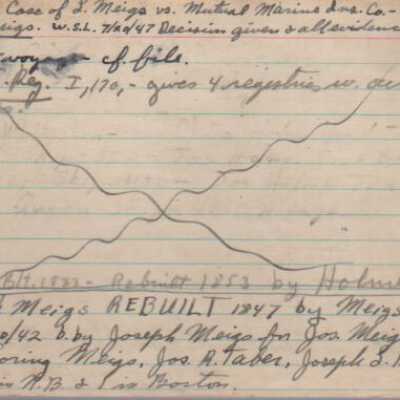 Case of L. Meigs vs. Mutual Marine Ins. Co. -
eigs. W.S.L. 7/20/47 Decision given & all evidence
voyages cf. file.
Reg. I, 170, - gives 4 registries w.
Blt. 1822 - Rebuilt 1853 by Holm
Meigs REBUILT 1847 by Meigs
/42 b. by Joseph Meigs for Jos. Meig
oring Meigs, Jos. R. Taber, Joseph
in N.B. & 1 in Boston.